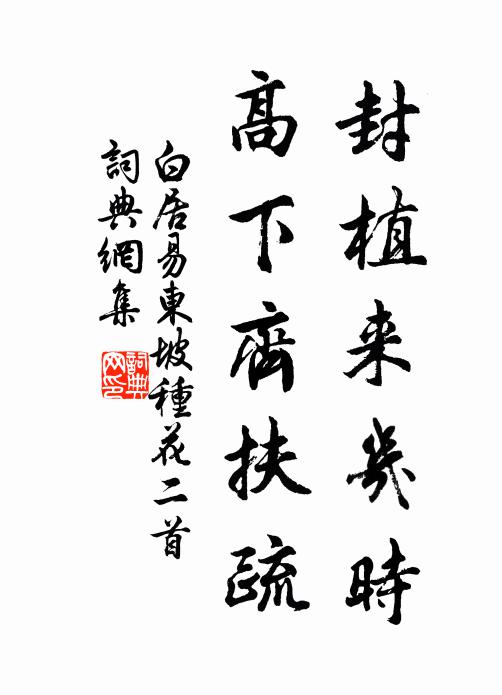 封植来幾時
高下齊扶疏
白居易東坡種花二首
詞典網集
詞典网印